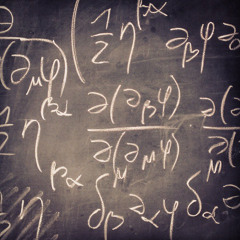 ∂ / ∂(∂_μ φ) ( 1/2 η^{βα} ∂_β φ ∂_α
1/2 η^{βα} ∂(∂_β φ) / ∂(∂_μ φ) ∂(∂
η^{βα} δ^μ_β ∂_α φ δ^μ_α ∂